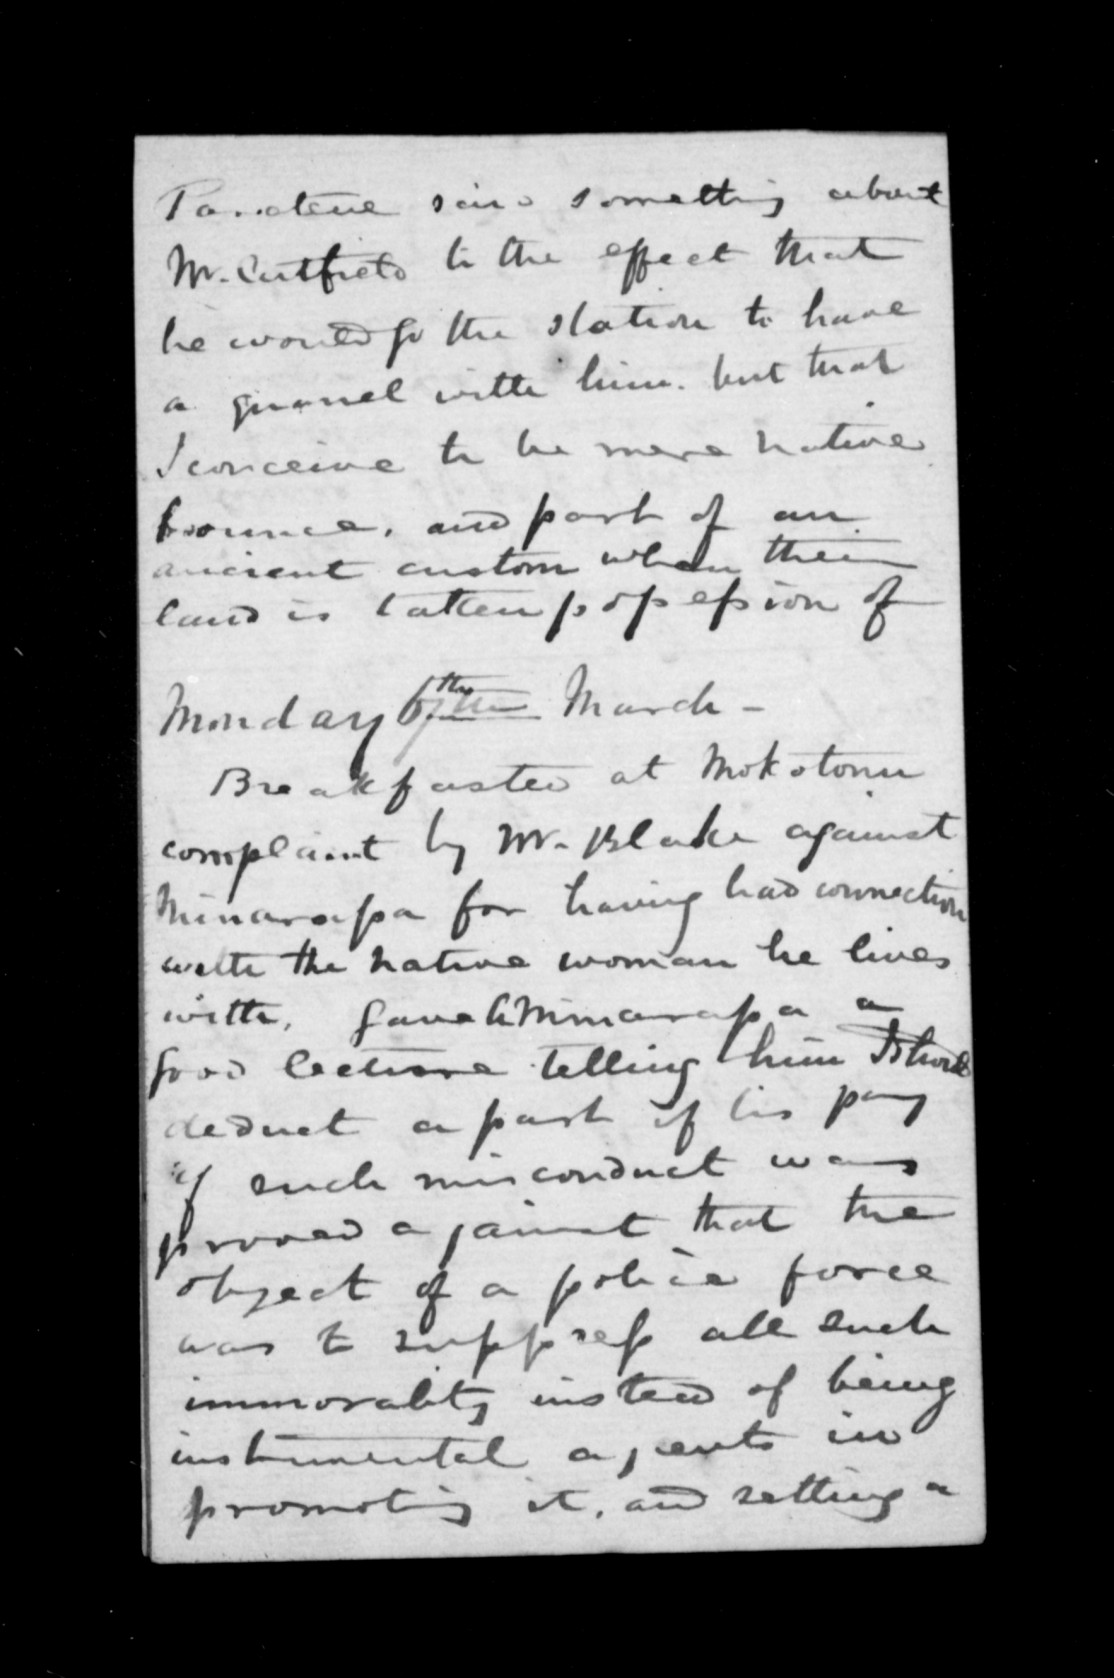 said something about
Mr. Cutfield to the effect that
he would go the station to have
a quarrel with him. but that
I conceive to be mere native
bounce, and part of an
ancient custom when their
land is taken possession of
Monday 6th March -
Breakfasted at Mokotonu
complaint by Mr. Blake against
Minarapa for having had connection
with the native woman he lives
with, gave to Minarapa a
good lecture telling him I should
deduct a part of his pay
if such misconduct was
proved against that the
object of a police force
was to suppress all such
immorality instead of being
instrumental agents in
promoting it, and setting a